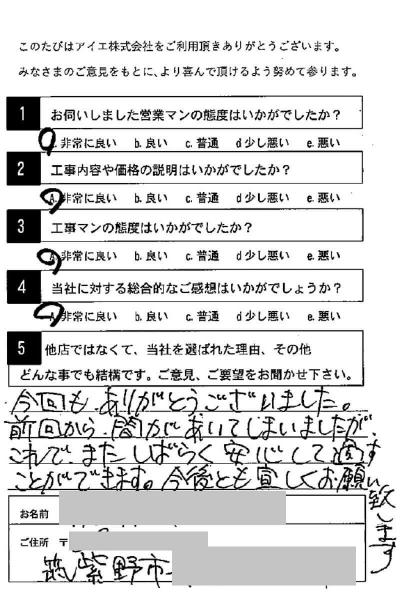 このたびはアイエ株式会社をご利用頂きありがとうございます。
みなさまのご意見をもとに、より喜んで頂けるよう努めて参ります。
1 お伺いしました営業マンの態度はいかがでしたか？
a.非常に良い b.良い c.普通 d少し悪い e.悪い
2 工事内容や価格の説明はいかがでしたか？
A.非常に良い b.良い c.普通 d少し悪い e.悪い
3 工事マンの態度はいかがでしたか？
A.非常に良い b.良い c.普通 d少し悪い e.悪い
4 当社に対する総合的なご感想はいかがでしょうか？
A.非常に良い b.良い c.普通 d少し悪い e.悪い
5 他店ではなくて、当社を選ばれた理由、その他
どんな事でも結構です。ご意見、ご要望をお聞かせ下さい。
今回も、ありがとうございました。
前回から、間があいてしまいましたが、
これで、またしばらく安心して過す
ことができます。今後とも宜しくお願い
致します
お名前
ご住所 〒
筑紫野市